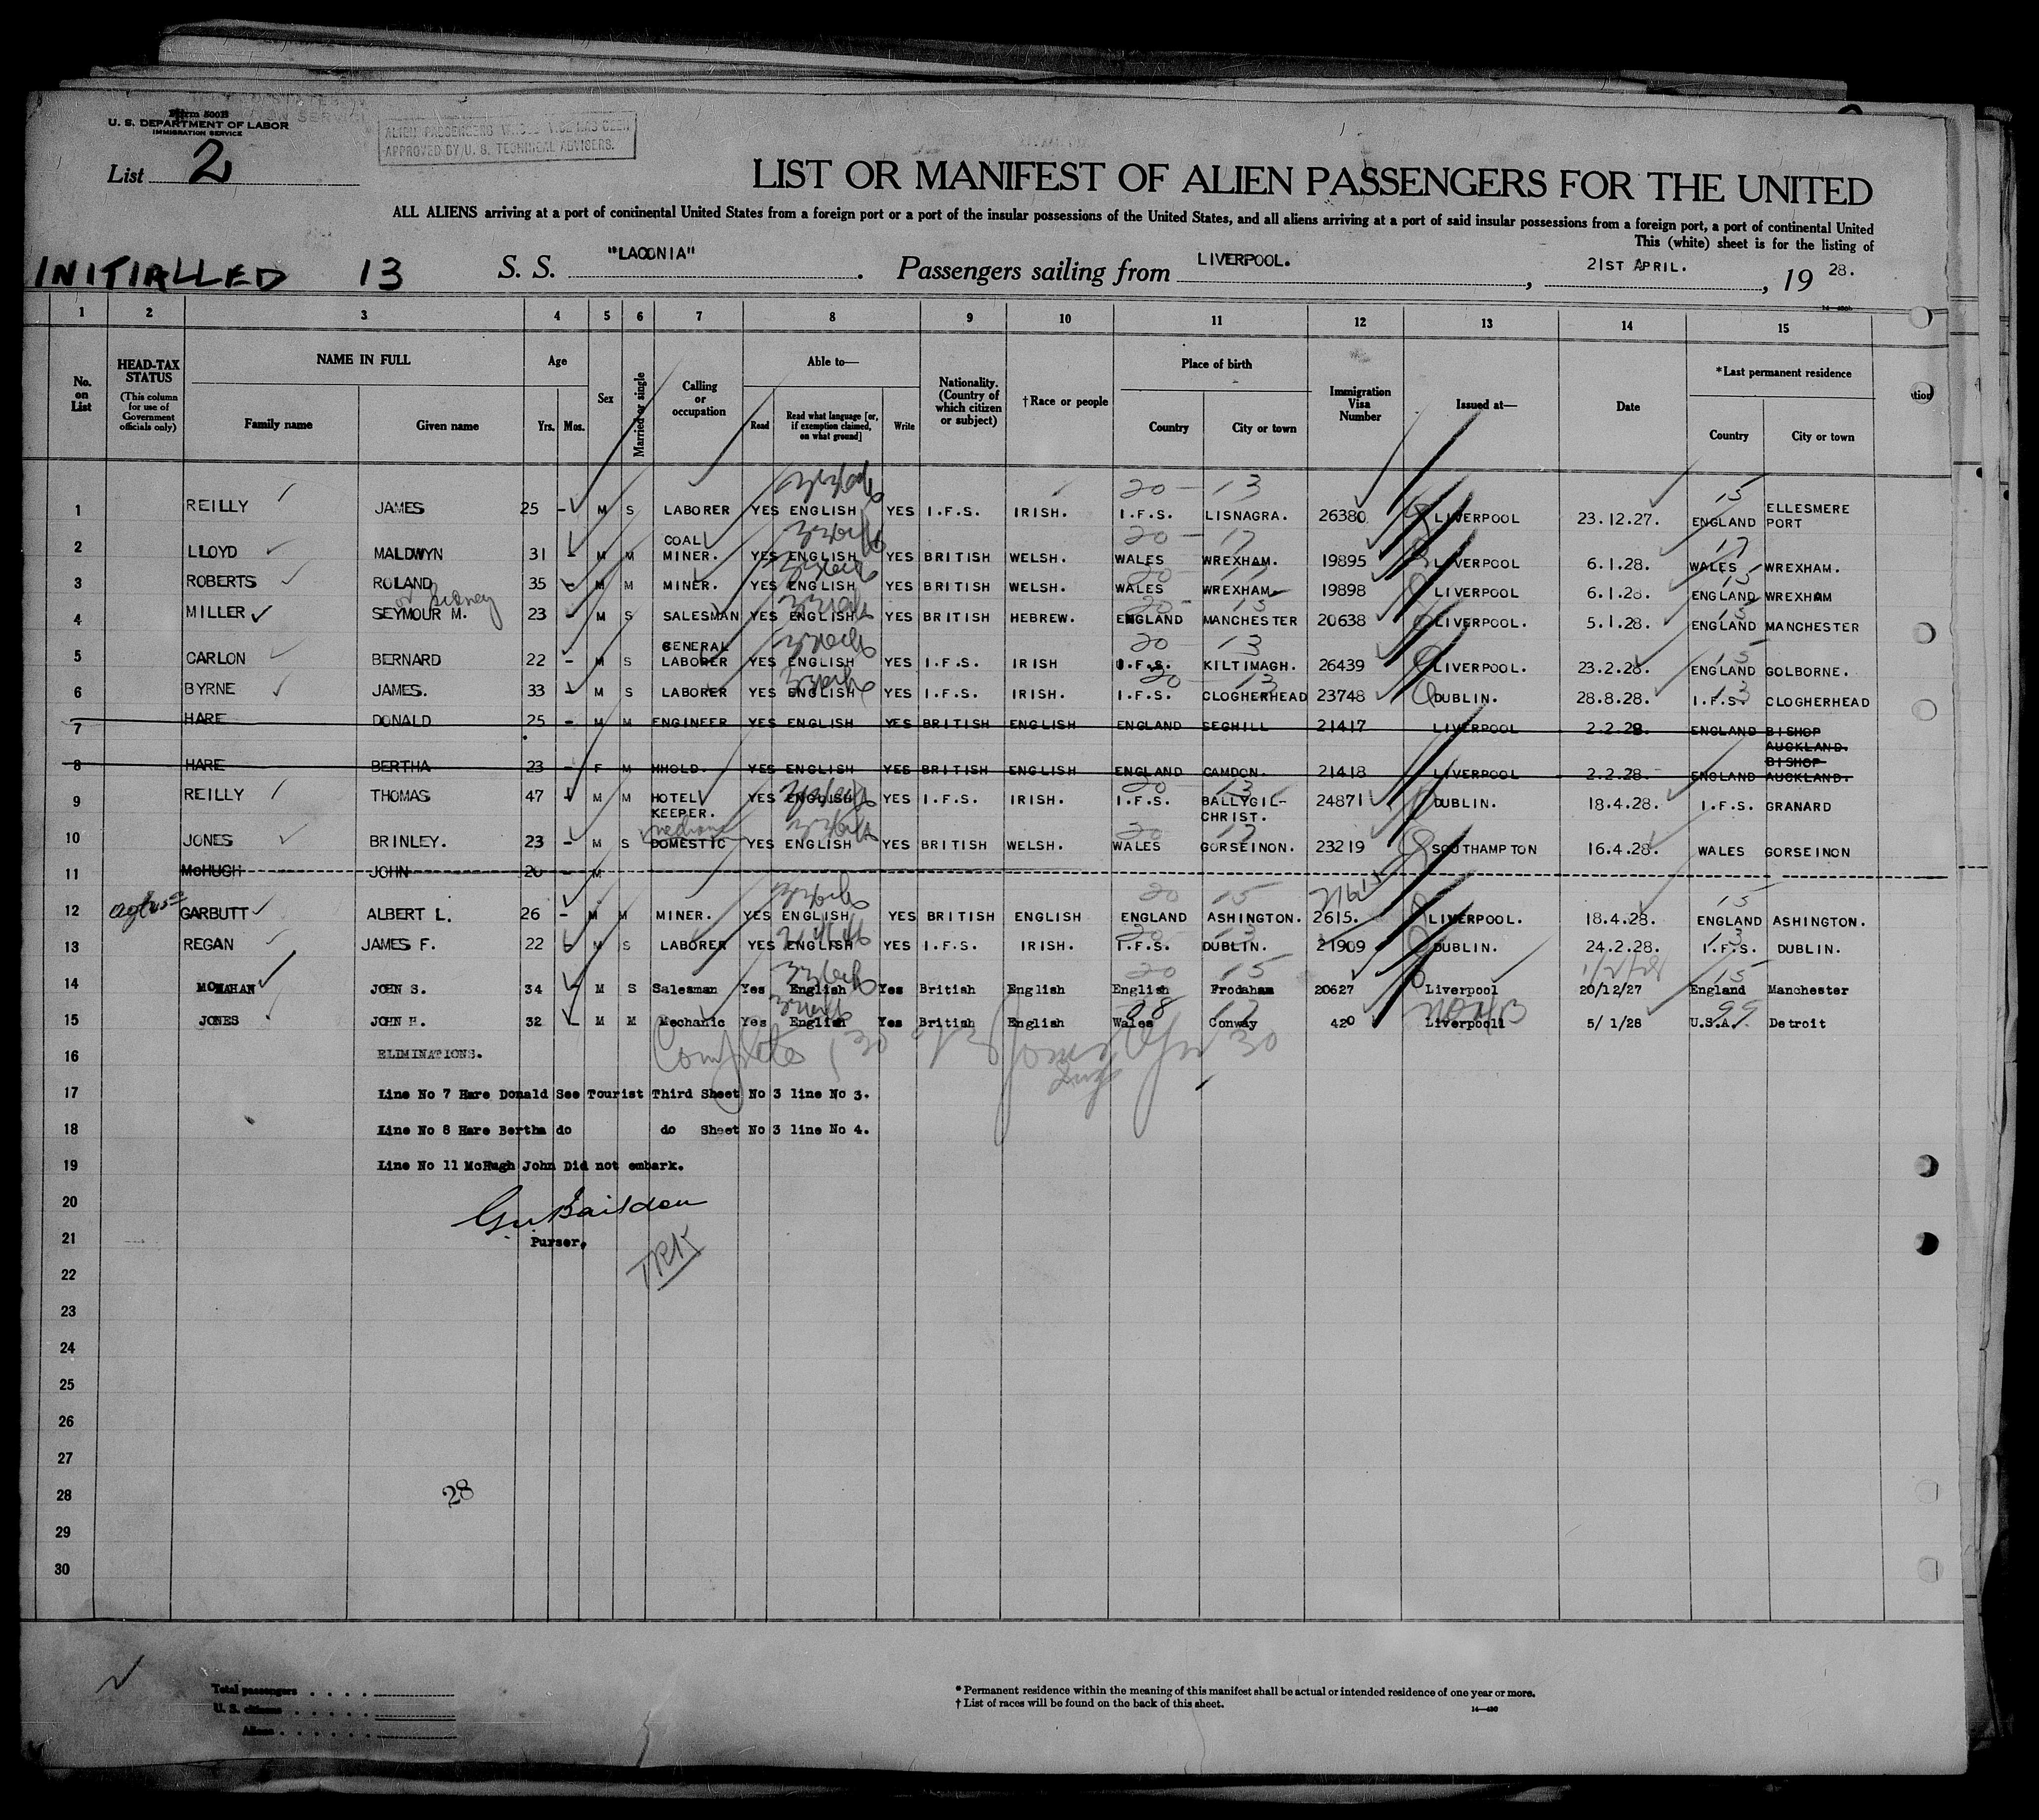 Form 500B
U. S. DEPARTMENT OF LABOR
IMMIGRATION SERVICE
ALIEN PASSENGERS HAS BEEN
APPROVED BY U. S. TECHNICAL ADVISERS.
List 2
LIST OR MANIFEST OF ALIEN PASSENGERS FOR THE UNITED
ALL ALIENS arriving at a port of continental United States from a foreign port or a port of the insular possessions of the United States, and all aliens arriving at a port of said insular possessions from a foreign port, a port of continental United
This (white) sheet is for the listing of
INITIALLED 13 S. S. "LACONIA" . Passengers sailing from LIVERPOOL. , 21ST APRIL. , 19 28.
1 2 3 4 5 6 7 8 9 10 11 12 13 14 15
No. on List
HEAD-TAX STATUS
(This column for use of Government officials only)
NAME IN FULL
Family name Given name
Age
Yrs. Mos.
Sex
Married or single
Calling or occupation
Able to—
Read Read what language [or, if exemption claimed, on what ground] Write
Nationality. (Country of which citizen or subject)
†Race or people
Place of birth
Country City or town
Immigration Visa Number
Issued at—
Date
*Last permanent residence
Country City or town
20 - 13 15
1 REILLY JAMES 25 - M S LABORER YES ENGLISH YES I.F.S. IRISH. I.F.S. LISNAGRA. 26380 LIVERPOOL 23.12.27. ENGLAND ELLESMERE PORT
20 - 17 17
2 LLOYD MALDWYN 31 - M M COAL MINER. YES ENGLISH YES BRITISH WELSH. WALES WREXHAM. 19895 LIVERPOOL 6.1.28. WALES WREXHAM.
3 ROBERTS ROLAND 35 - M M MINER. YES ENGLISH YES BRITISH WELSH. WALES WREXHAM. 19898 LIVERPOOL 6.1.28. ENGLAND WREXHAM
or Sidney
4 MILLER SEYMOUR M. 23 - M S SALESMAN YES ENGLISH YES BRITISH HEBREW. ENGLAND MANCHESTER 20638 LIVERPOOL. 5.1.28. ENGLAND MANCHESTER
20 - 13 15
5 CARLON BERNARD 22 - M S GENERAL LABORER YES ENGLISH YES I.F.S. IRISH I.F.S. KILTIMAGH. 26439 LIVERPOOL. 23.2.28. ENGLAND GOLBORNE.
6 BYRNE JAMES. 33 - M S LABORER YES ENGLISH YES I.F.S. IRISH. I.F.S. CLOGHERHEAD 23748 DUBLIN. 28.8.28. I.F.S. CLOGHERHEAD
7 HARE DONALD 25 - M M ENGINEER YES ENGLISH YES BRITISH ENGLISH ENGLAND SEGHILL 21417 LIVERPOOL 2.2.28. ENGLAND BISHOP AUCKLAND.
8 HARE BERTHA 23 - F M HHOLD. YES ENGLISH YES BRITISH ENGLISH ENGLAND CAMDON. 21418 LIVERPOOL 2.2.28. ENGLAND BISHOP AUCKLAND.
9 REILLY THOMAS 47 M M HOTEL KEEPER. YES ENGLISH YES I.F.S. IRISH. I.F.S. BALLYGIL-CHRIST. 24871 DUBLIN. 18.4.28. I.F.S. GRANARD
10 JONES BRINLEY. 23 - M S DOMESTIC YES ENGLISH YES BRITISH WELSH. WALES GORSEINON. 23219 SOUTHAMPTON 16.4.28. WALES GORSEINON
11 McHUGH JOHN 20 - M
20 15 15
12 GARBUTT ALBERT L. 26 - M M MINER. YES ENGLISH YES BRITISH ENGLISH ENGLAND ASHINGTON. 2615. LIVERPOOL. 18.4.28. ENGLAND ASHINGTON.
13 REGAN JAMES F. 22 - M S LABORER YES ENGLISH YES I.F.S. IRISH. I.F.S. DUBLIN. 21909 DUBLIN. 24.2.28. I.F.S. DUBLIN.
20 15 15
14 MONAHAN JOHN S. 34 - M S Salesman Yes English Yes British English English Frodsham 20627 Liverpool 20/12/27 England Manchester
15 JONES JOHN H. 32 M M Mechanic Yes English Yes British English Wales Conway 420 Liverpool 5/ 1/28 U.S.A. Detroit
16 ELIMINATIONS.
17 Line No 7 Hare Donald See Tourist Third Sheet No 3 line No 3.
18 Line No 8 Hare Bertha do do Sheet No 3 line No 4.
19 Line No 11 McHugh John Did not embark.
20
21 Purser.
22
23
24
25
26
27
28 28
29
30
Total passengers
U. S. citizens
Aliens
* Permanent residence within the meaning of this manifest shall be actual or intended residence of one year or more.
† List of races will be found on the back of this sheet.
14—430